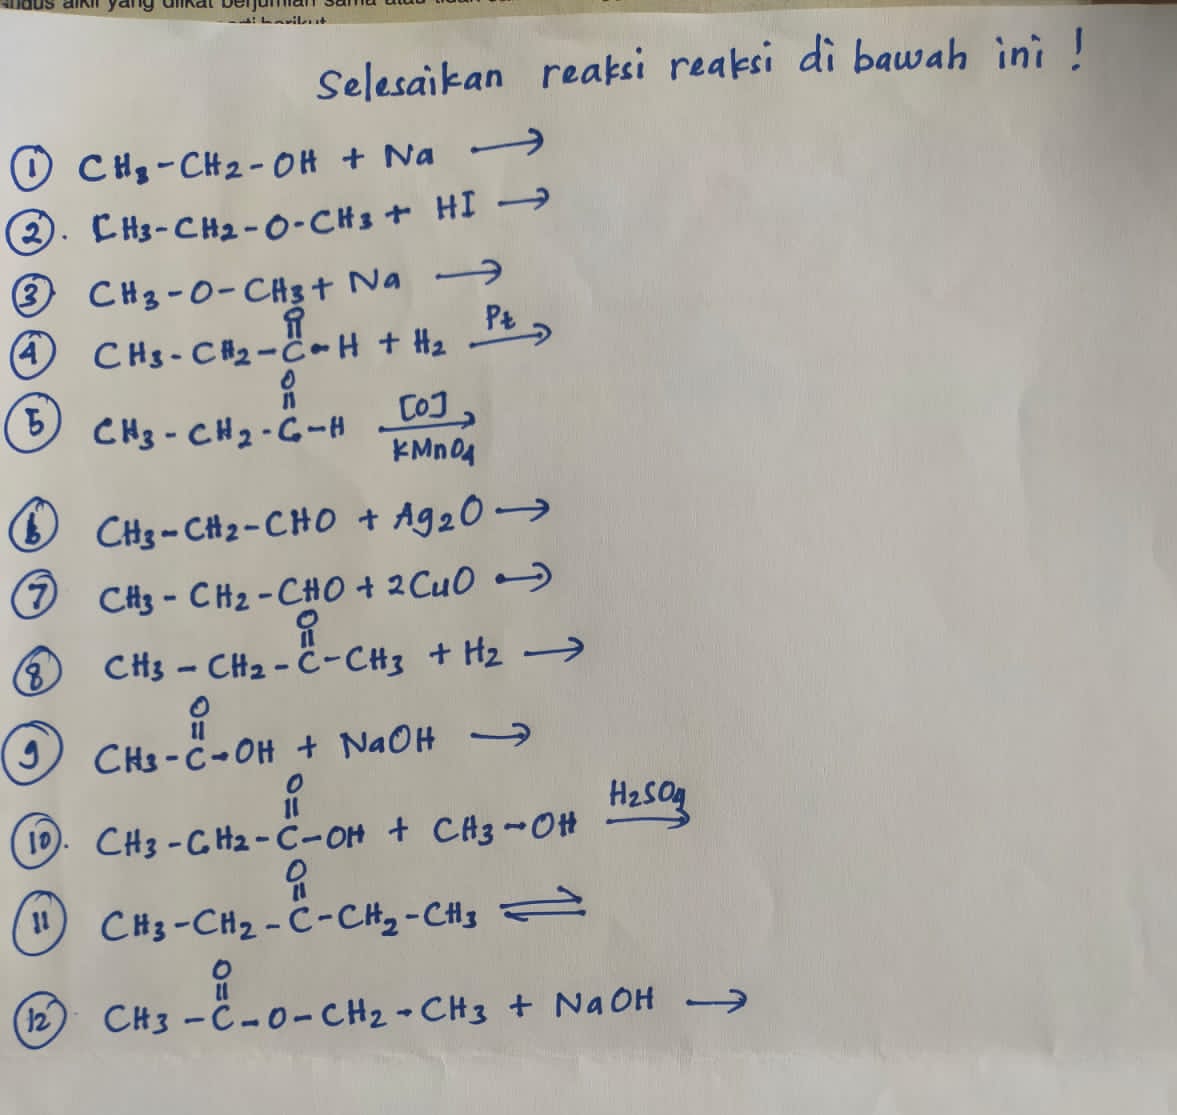 alkil yang diikat berjumlah sama atau tidak
berikut
Selesaikan reaksi reaksi di bawah ini !
1 CH3-CH2-OH + Na →
2. CH3-CH2-O-CH3 + HI →
3 CH3-O-CH3 + Na →
O
||
4 CH3-CH2-C-H + H2 Pt →
O
||
5 CH3-CH2-C-H [O] → KMnO4
6 CH3-CH2-CHO + Ag2O →
7 CH3-CH2-CHO + 2CuO →
O
||
8 CH3-CH2-C-CH3 + H2 →
O
||
9 CH3-C-OH + NaOH →
O
||
10. CH3-CH2-C-OH + CH3-OH H2SO4 →
O
||
11 CH3-CH2-C-CH2-CH3 ⇌
O
||
12 CH3-C-O-CH2-CH3 + NaOH →